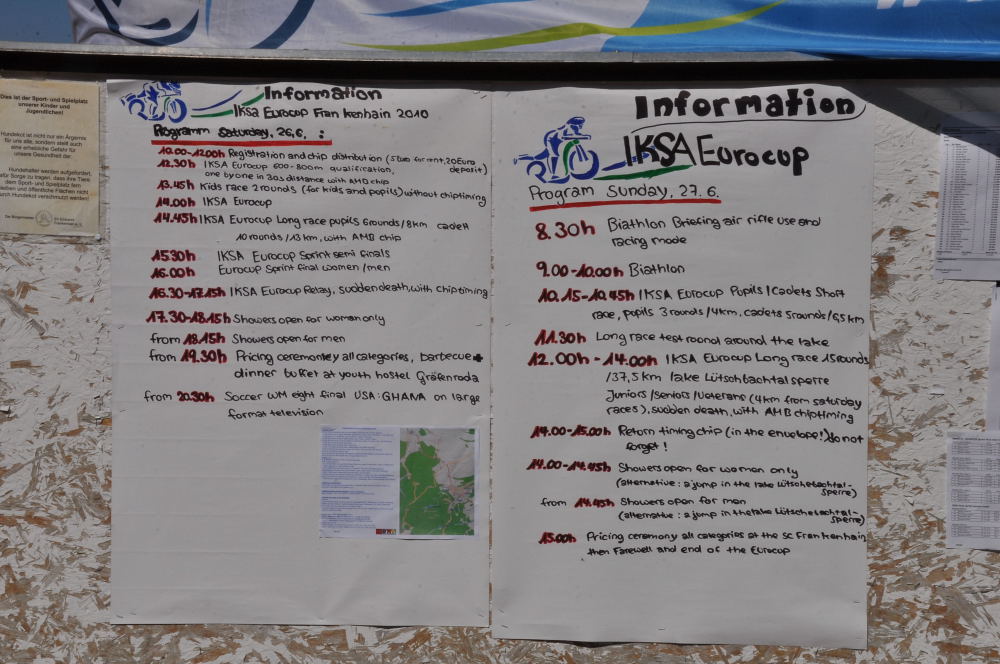 Dies ist der Sport- und Spielplatz
unserer Kinder und
Jugendlichen!
Hundekot ist nicht nur ein Ärgernis
für uns alle, sondern stellt auch
eine erhebliche Gefahr für
unsere Gesundheit dar.
Hundehalter werden aufgefordert,
dafür Sorge zu tragen, dass ihre Tiere
dem Sport- und Spielplatz fern
bleiben und öffentliche Flächen nicht
durch Hundekot verschmutzt werden!
Information
IKSA Eurocup Frankenhain 2010
Programm Saturday, 26.6. :
10.00-12.00h Registration and chip distribution (5 Euro for rent, 20 Euro deposit)
12.30h IKSA Eurocup 600-800m qualification,
one by one in 30s distance with AMB chip
13.45h Kids race 2 rounds (for kids and pupils) without chiptiming
14.00h IKSA Eurocup
14.45h IKSA Eurocup Long race pupils 6rounds/8km cadett
10rounds/13km, with AMB chip
15.30h IKSA Eurocup Sprint semi finals
16.00h Eurocup Sprint final women/men
16.30-17.15h IKSA Eurocup Relay, sudden death, with chiptiming
17.30-18.15h Showers open for woman only
from 18.15h Showers open for men
from 19.30h Pricing ceremontey all categories, barbecue +
dinner buffet at youth hostel Gräfenroda
from 20.30h Soccer WM eight final USA:GHANA on large
format television
Information
IKSA Eurocup
Program Sunday, 27.6.
8.30h Biathlon Briefing air rifle use and
racing mode
9.00-10.00h Biathlon
10.15-10.45h IKSA Eurocup Pupils/Cadets Short
race, pupils 3rounds/4km, cadets 5rounds/6,5km
11.30h Long race test round around the lake
12.00h-14.00h IKSA Eurocup Long race 15rounds
/37,5km lake Lütschbachtalsperre
Juniors/Seniors/Veterans (4km from saturday
races), sudden death, with AMB chiptiming
14.00-15.00h Return timing chip (in the envelope!) do not
forget!
14.00-14.45h Showers open for women only
(alternative: a jump in the lake Lütschebachtal-
sperre)
from 14.45h Showers open for men
(alternative: a jump in the lake Lütschebachtal-
sperre)
15.00h Pricing ceremony all categories at the SC Frankenhain,
then Farewell and end of the Eurocup